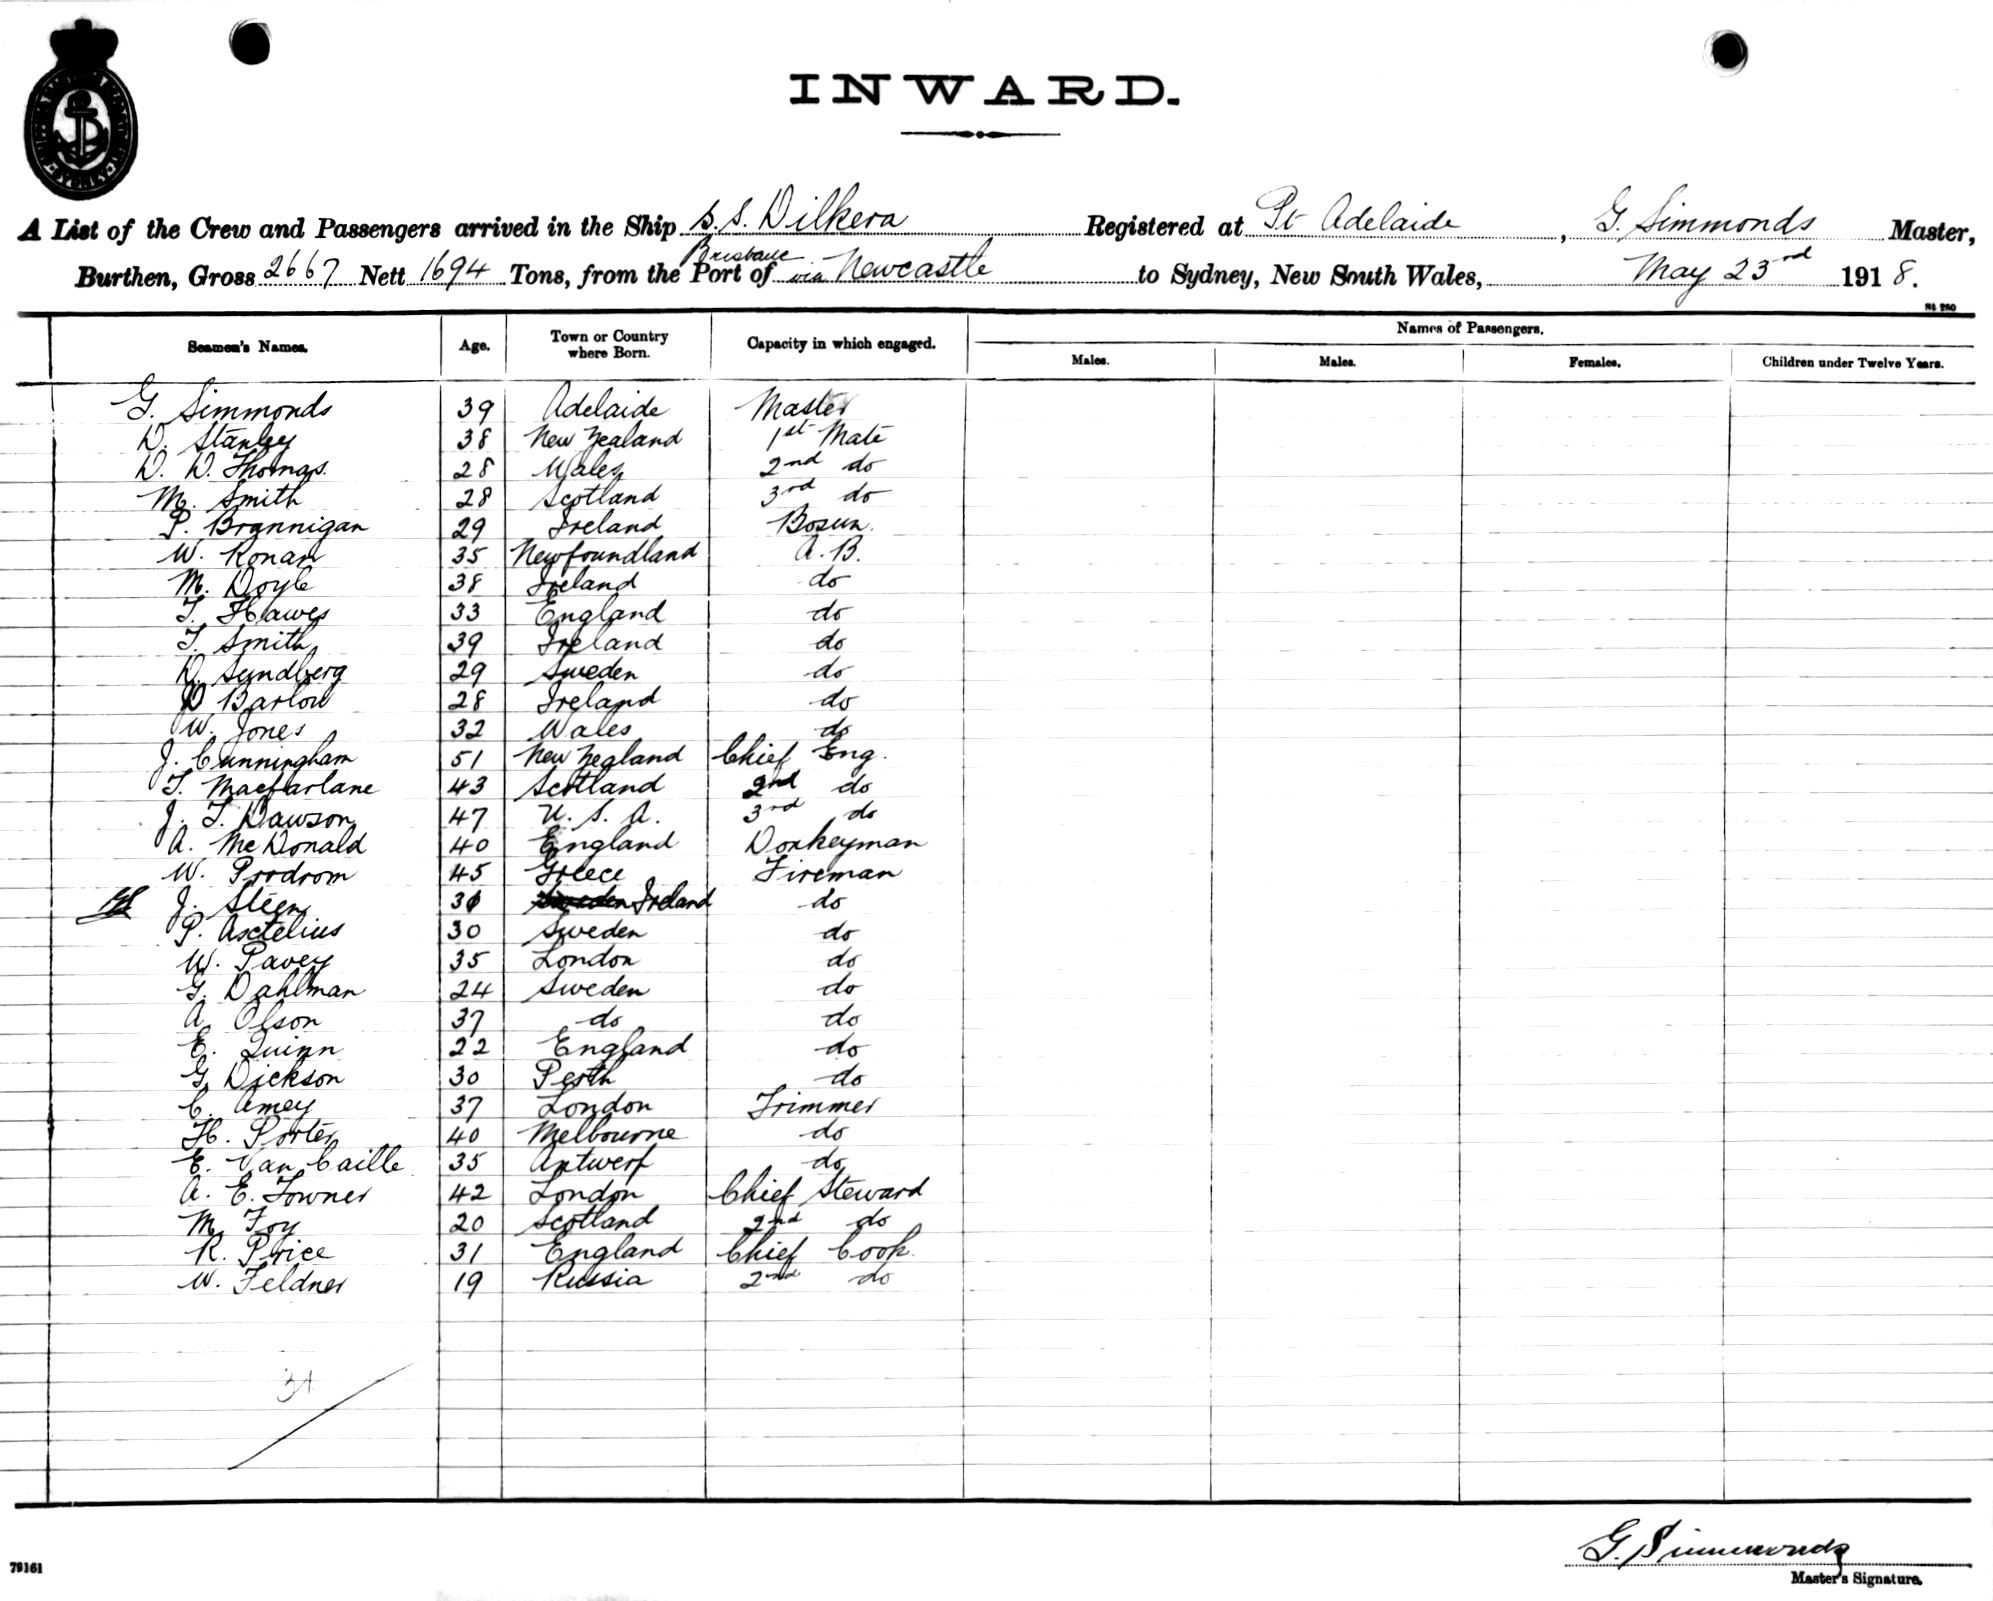 SYDNEY
INWARD.
A List of the Crew and Passengers arrived in the Ship S. S. Dilkera Registered at Pt Adelaide, G. Simmonds Master,
Brisbane
Burthen, Gross 2667 Nett 1694 Tons, from the Port of via Newcastle to Sydney, New South Wales, May 23rd 1918.
Seamen's Names. Age. Town or Country where Born. Capacity in which engaged. Names of Passengers.
Males. Males. Females. Children under Twelve Years.
G. Simmonds 39 Adelaide Master
D. Stanley 38 New Zealand 1st Mate
D. D. Thomas. 28 Wales 2nd do
M. Smith 28 Scotland 3rd do
P. Brannigan 29 Ireland Bosun.
W. Ronan 35 Newfoundland A. B.
M. Doyle 38 Ireland do
T. Hawes 33 England do
T. Smith 39 Ireland do
D. Sundberg 29 Sweden do
P Barlow 28 Ireland do
W. Jones 32 Wales do
J. Cunningham 51 New Zealand Chief Eng.
T. Macfarlane 43 Scotland 2nd do
J. T. Dawson 47 U. S. A. 3rd do
A. McDonald 40 England Donkeyman
W. Prodrom 45 Greece Fireman
J. Steen Sweden Ireland do
P. Asctelius 30 Sweden do
W. Pavey 35 London do
G. Dahlman 24 Sweden do
A. Olson 37 do do
E. Quinn 22 England do
G. Dickson 30 Perth do
C. Amey 37 London Trimmer
H. Porter 40 Melbourne do
E. Van Caille 35 Antwerp do
A. E. Towner 42 London Chief Steward
M. Foy 20 Scotland 2nd do
R. Price 31 England Chief Cook.
W. Feldner 19 Russia 2nd do
31
G. Simmonds
Master's Signature.
79161